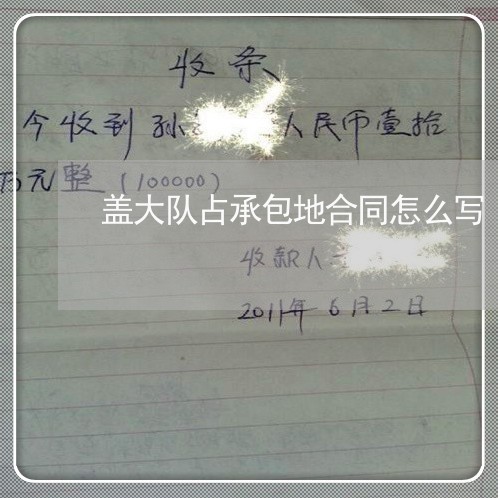 收条
今收到孙 人民币壹拾
万元整（100000）
盖大队占承包地合同怎么写
收款人
2011年6月2日